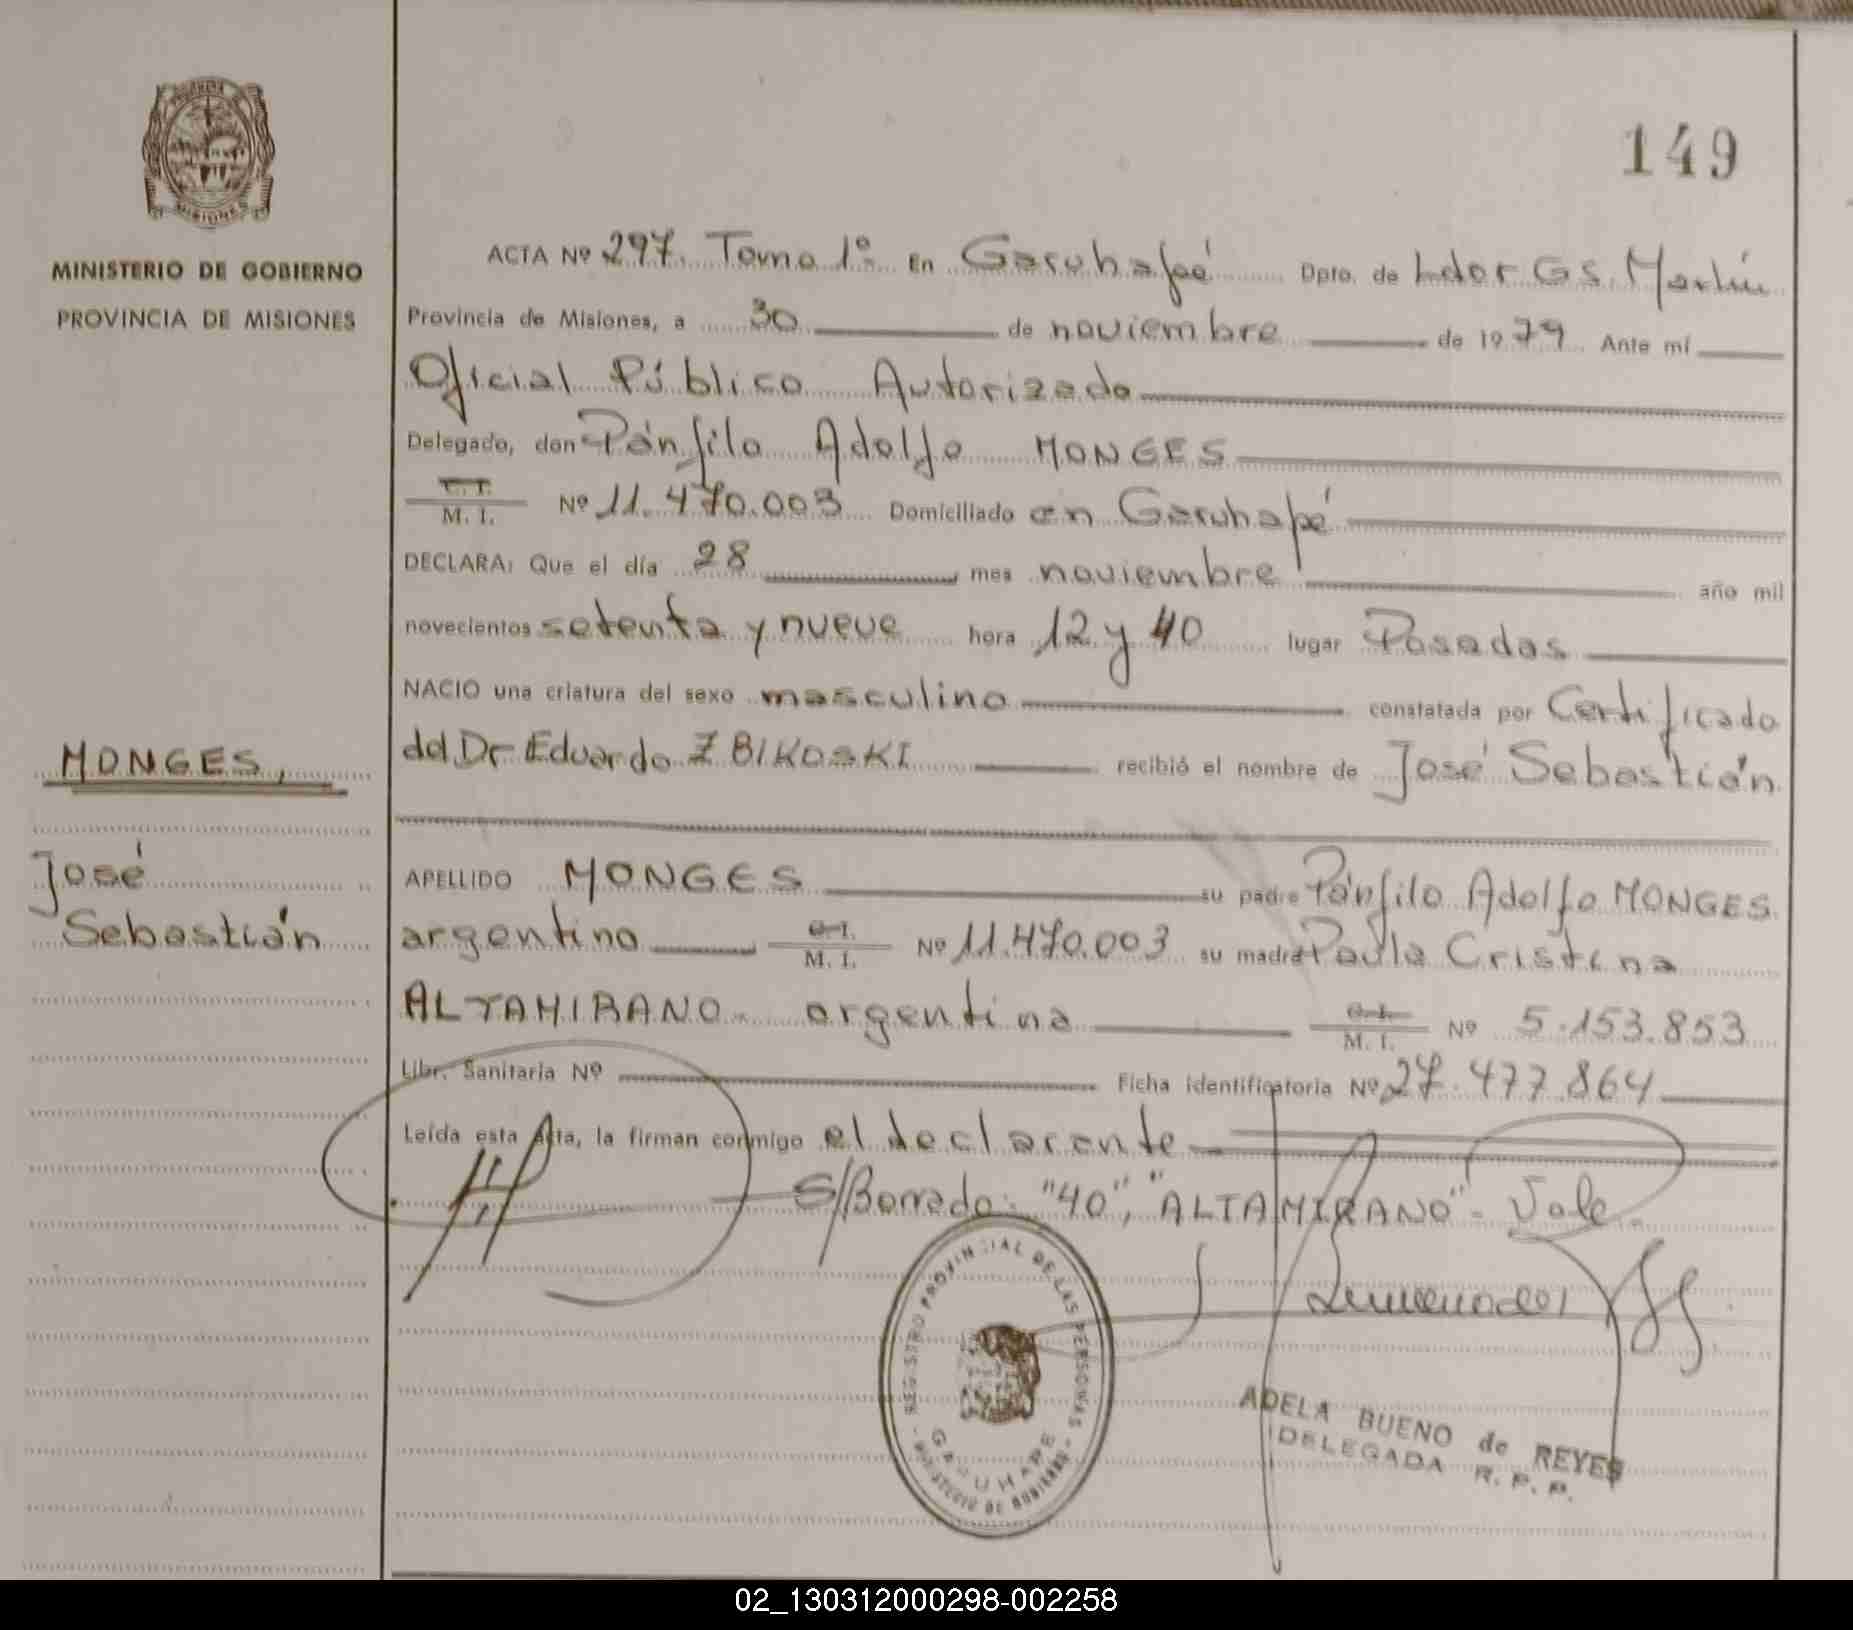 149
PROVINCIA DE
MISIONES
MINISTERIO DE GOBIERNO
PROVINCIA DE MISIONES
MONGES,
José
Sebastián
ACTA Nº 297. Tomo 1º En Garuhapé Dpto. de Ldor Gs. Martín
Provincia de Misiones, a 30 de noviembre de 1979 Ante mí
Oficial Público Autorizado
Delegado, don Pánfilo Adolfo MONGES
C. I.
M. I. Nº 11.470.003 Domiciliado en Garuhapé
DECLARA: Que el día 28 mes noviembre año mil
novecientos setenta y nueve hora 12 y 40 lugar Posadas
NACIO una criatura del sexo masculino constatada por Certificado
del Dr. Eduardo ZBIKOSKI recibió el nombre de José Sebastián
APELLIDO MONGES su padre Pánfilo Adolfo MONGES
argentino C. I.
M. I. Nº 11.470.003 su madre Paula Cristina
ALTAMIRANO argentina C. I.
M. I. Nº 5.153.853
Libr. Sanitaria Nº Ficha identificatoria Nº 27.477.864
Leída esta acta, la firman conmigo el declarante
S/Borrado: "40", "ALTAMIRANO" - Vale.
REGISTRO PROVINCIAL DE LAS PERSONAS
GARUHAPE
MINISTERIO DE GOBIERNO
ADELA BUENO de REYES
DELEGADA R. P. P.
02_130312000298-002258